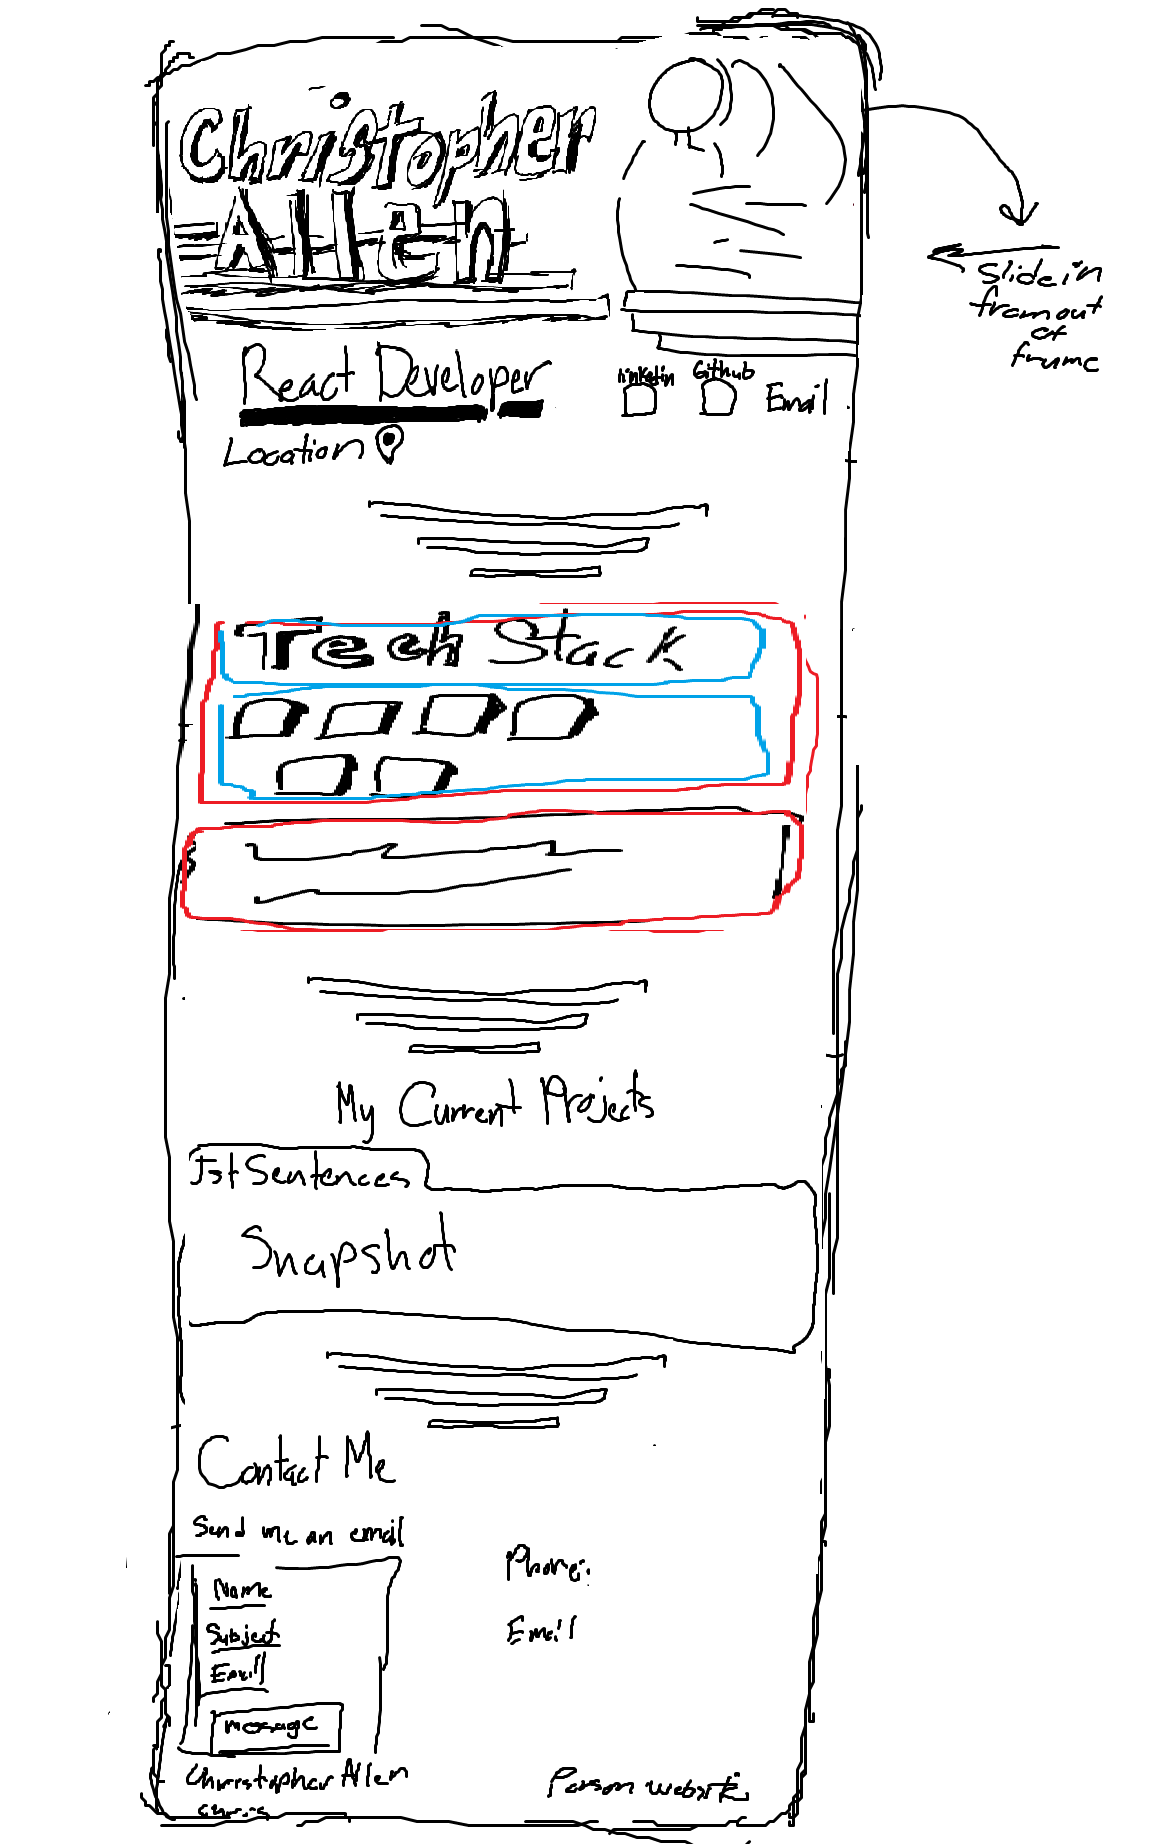 Christopher
Allen
Slide in
from out
of
frame
React Developer
linkedin Github Email
Location
Tech Stack
My Current Projects
Jst Sentences
Snapshot
Contact Me
Send me an email
Name
Subject
Email
message
Phone:
Email
Christopher Allen
chris
Person website